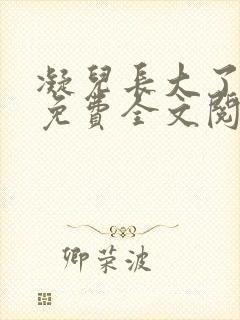 凝兒長大了
免費全文閱
卿荣波